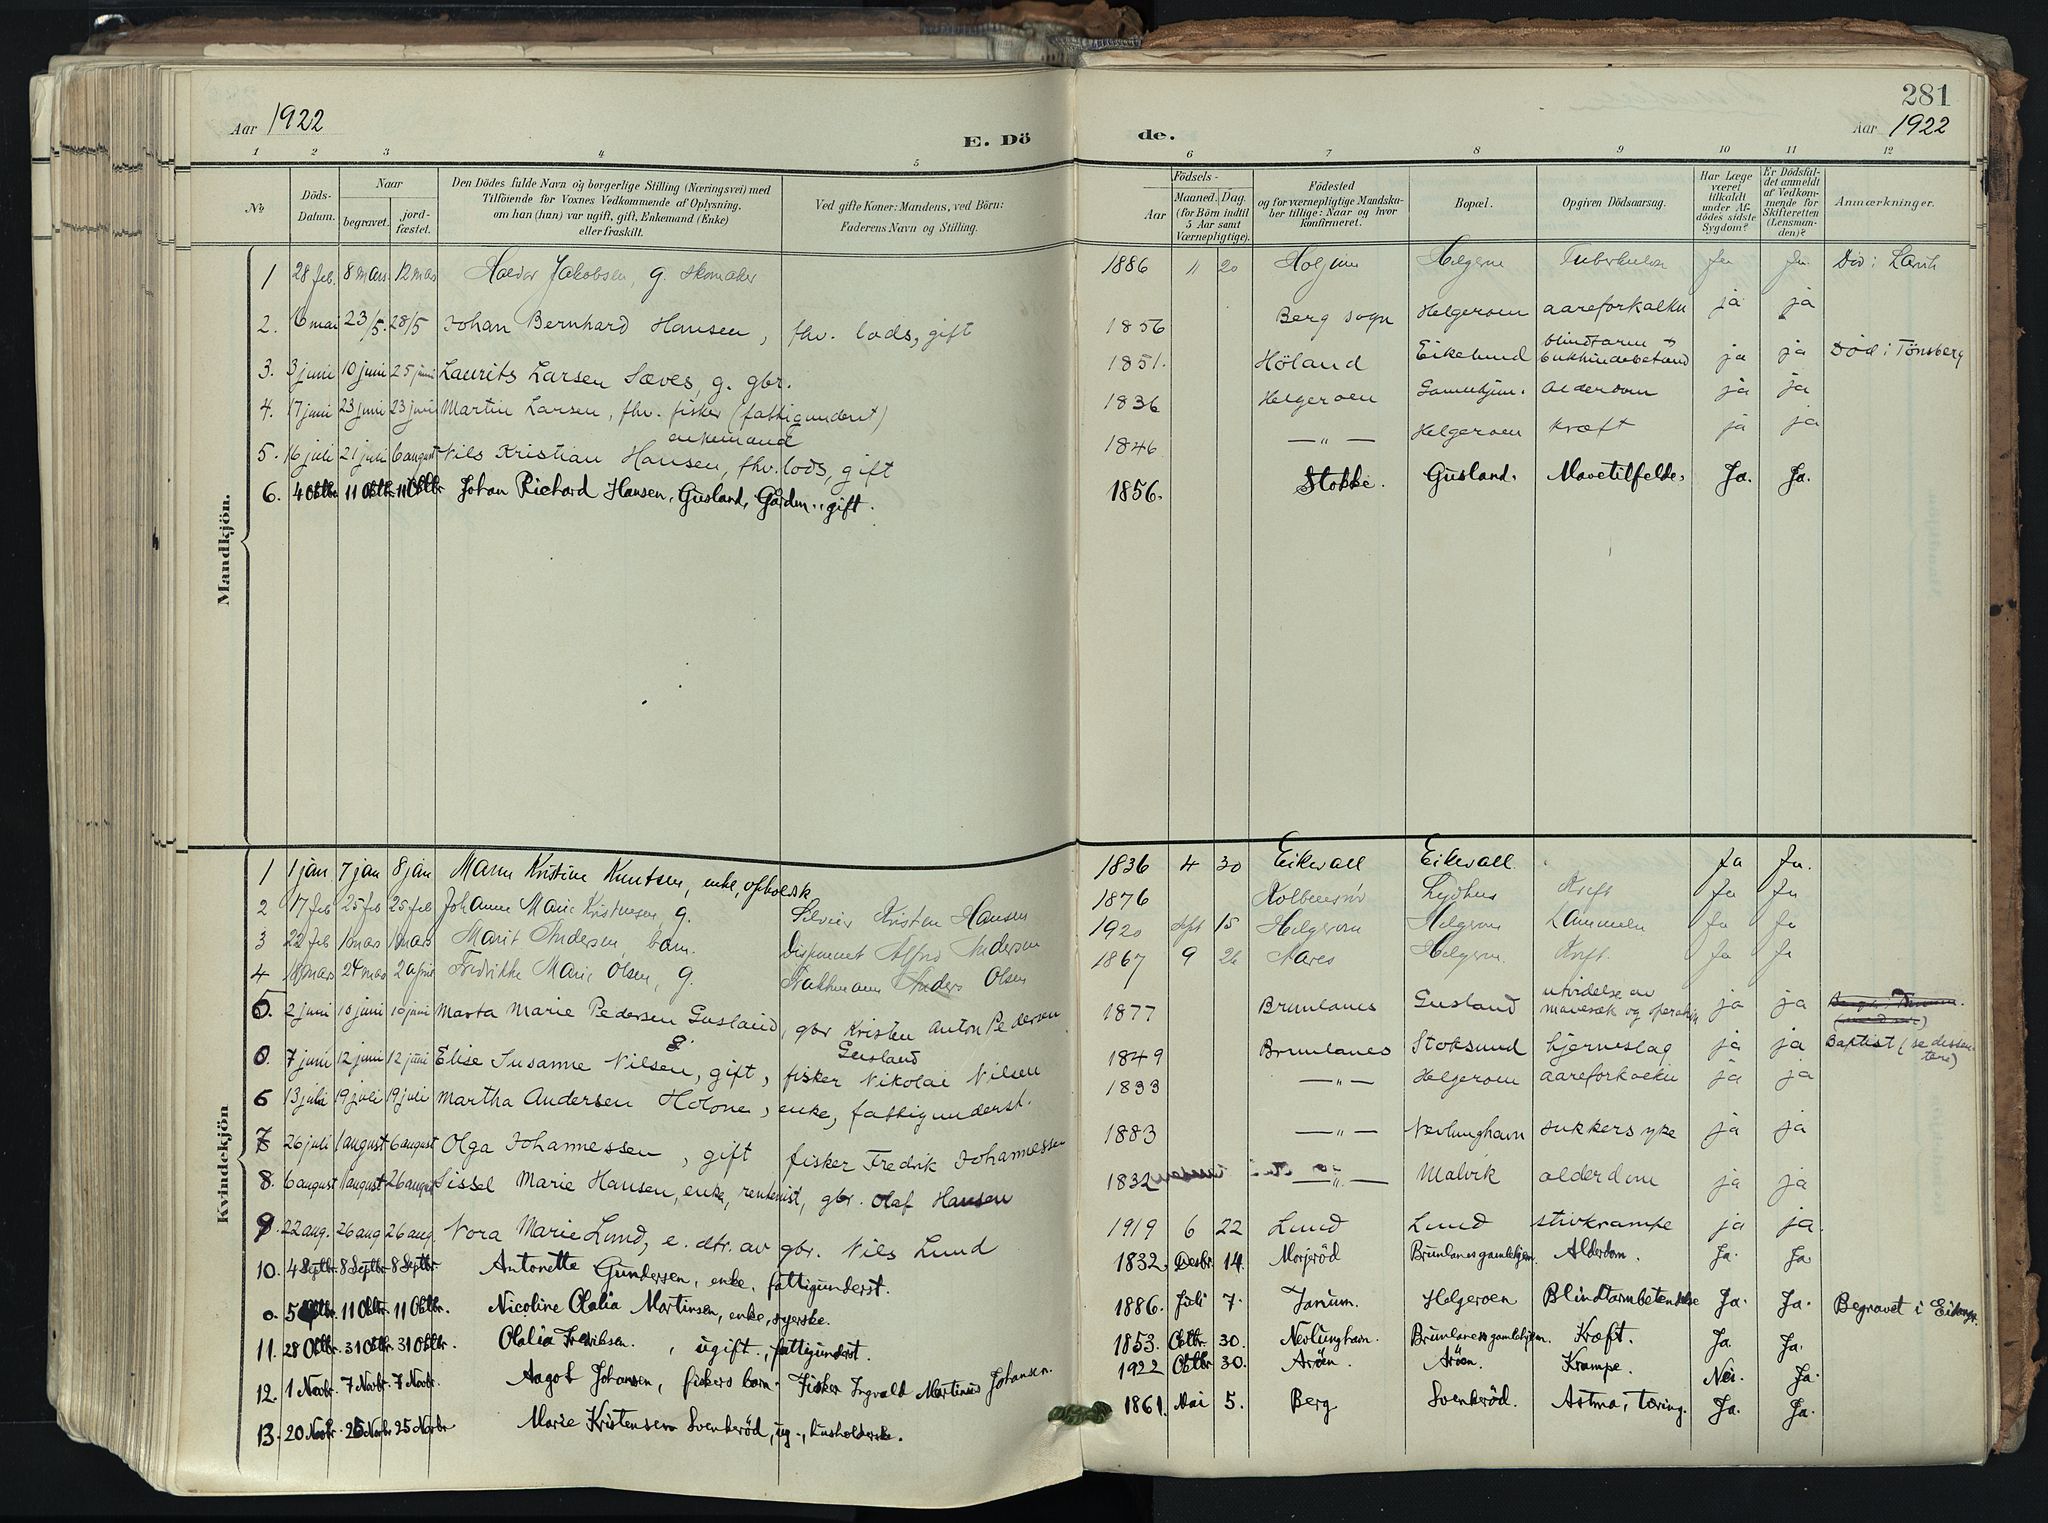 281
Aar 1922
E. Dö
de.
Aar 1922
1 2 3 4 5 6 7 8 9 10 11 12
No.
Döds-
Datum.
Naar
begravet.
jord-
fæstet.
Den Dödes fulde Navn og borgerlige Stilling (Næringsvei) med
Tilföiende for Voxnes Vedkommende af Oplysning,
om han (hun) var ugift, gift, Enkemand (Enke)
eller fraskilt.
Ved gifte Koner: Mandens, ved Börn:
Faderens Navn og Stilling.
Födsels-
Aar
Maaned. Dag.
(for Börn indtil
5 Aar samt
Værnepligtige).
Födested
og for værnepligtige Mandska-
ber tillige: Naar og hvor
konfirmeret.
Bopæl.
Opgiven Dödsaarsag.
Har Læge
været
tilkaldt
under Af-
dödes sidste
Sygdom?
Er Dödsfal-
det anmeldt
af Vedkom-
mende for
Skifteretten
(Lensman-
den)?
Anmærkninger.
Mandkjön.
1 28 feb. 8 mars 12 mars Jakobsen, g. skomaker 1886 11 20 Tuberkulose Ja Ja Död i Larvik
2. 16 mai 23/5. 28/5 Johan Bernhard Hansen, fhv. lods, gift 1856 Berg sogn Helgeroen aareforkalkn ja ja
3. 3 juni 10 juni 25 juni Laurits Larsen Sæves, g. gbr. 1851. Höland Eikelund blindtarm + bukhindebetænd ja ja Död i Tönsberg
4. 17 juni 23 juni 23 juni Martin Larsen, fhv. fisker (fattigunderst) enkemand 1836 Helgeroen Gamlehjem. Alderdom ja ja
5. 16 juli 21 juli 6 august Nils Kristian Hansen, fhv. lods, gift 1846 —„— Helgeroen kræft ja ja
6. 4 Oktbr. 11 Oktbr. 11 Oktbr. Johan Richard Hansen, Gusland, Gården., gift. 1856. Stokke. Gusland. Mavetilfelde. Ja. Ja.
Kvindekjön
1 1 jan 7 jan 8 jan Maren Kristine Knutsen, enke, opholdsk 1836 4 30 Eikevall Eikevall. Ja Ja.
2 17 feb 25 feb 25 feb Johanne Marie Kristensen g. Kristen Hansen 1876 Lydhus Kræft Ja Ja
3 22 feb 1 mars 1 mars Marit Andersen barn. Disponent Alfred Andersen 1920 Sept 15 Helgeroen Helgeroen Ja Ja
4 18 mars 24 mars 2 april Fredrikke Marie Olsen, g. Anders Olsen 1867 9 26 Nares Helgeroen Kræft. Ja Ja
5. 2 juni 10 juni 10 juni Marta Marie Pedersen Gusland, g. gbr Kristen Anton Pedersen Gusland 1877 Brunlanes Gusland utvidelse av mavesæk og operation ja ja
0. 7 juni 12 juni 12 juni Elise Susanne Nilsen, gift, fisker Nikolai Nilsen 1849 Brunlanes Stoksund hjerneslag ja ja Baptist (se dissen-
tere)
6 13 juli 19 juli 19 juli Martha Andersen Holone, enke, fattigunderst. 1833 —„— Helgeroen aareforkalkn ja ja
7 26 juli 1 august 6 august Olga Johannessen, gift fisker Fredrik Johannessen 1883 —„— Nevlunghavn sukkersyke ja ja
8. 6 august 11 august 26 august Sissel Marie Hansen, enke, rentenist, gbr. Olaf Hansen 1832 —„— Malvik alderdom ja ja
9. 22 aug. 26 aug 26 aug. Nora Marie Lund, e. dtr. av gbr. Nils Lund 1919 6 22 Lund Lund stivkrampe ja ja.
10. 4 Septbr. 8 Septbr. 8 Septbr. Antonette Gundersen, enke, fattigunderst. 1832. Desbr. 14. Morjeröd Brunlanes gamlehjem. Alderdom. Ja. Ja.
0. 5 Oktbr. 11 Oktbr. 11 Oktbr. Nicoline Olalia Martinsen, enke, syerske. 1886. Juli 7. Tanum. Helgeroen Blindtarmbetendelse Ja. Ja. Begravet i Eidanger.
11. 28 Oktbr. 31 Oktbr. 31 Oktbr. Olalia Fredriksen., ugift., fattigunderst. 1853. Oktbr. 30. Nevlunghavn. Brunlanes gamlehjem. Kræft. Ja. Ja.
12. 1 Novbr. 7 Novbr. 7 Novbr. Aagot Johansen, fiskers barn. Fisker Ingvald Martinius Johansen. 1922 Oktbr. 30. Aröen. Aröen. Krampe. Nei. Ja.
13. 20 Novbr. 25 Novbr 25 Novbr Marie Kristensen Svenkeröd, ug., husholderske. 1861. Mai 5. Berg Svenkeröd. Astma, tæring. Ja. Ja.